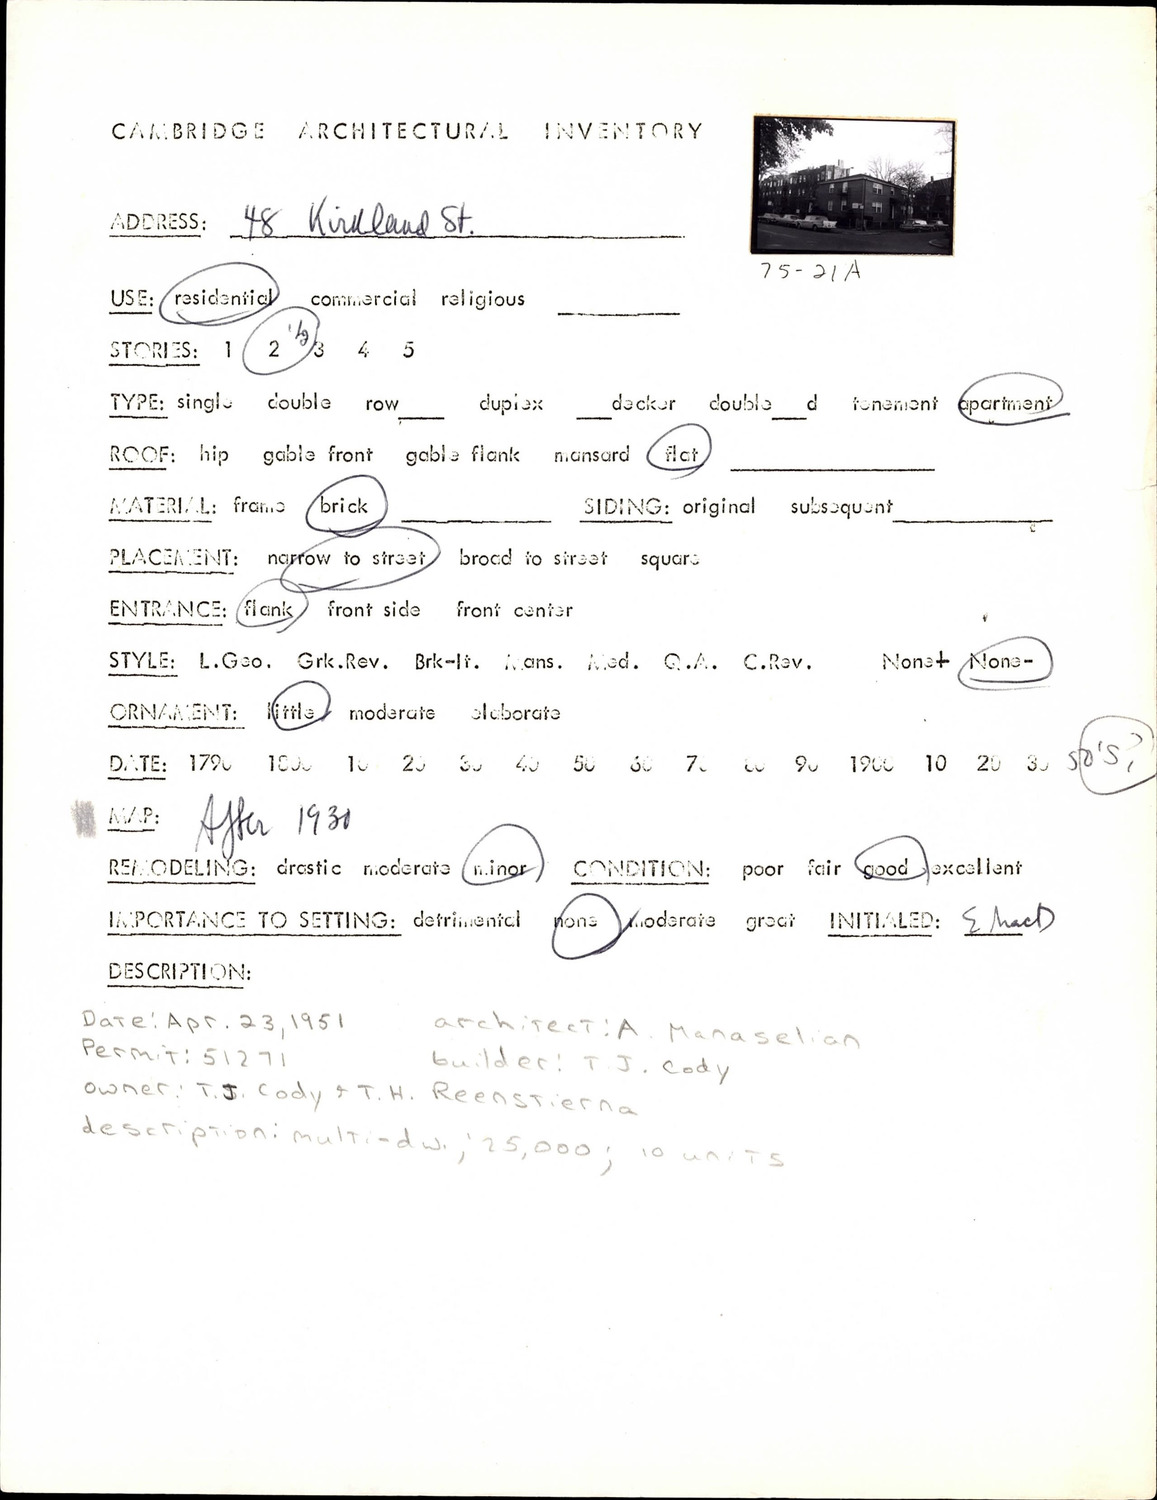 CAMBRIDGE ARCHITECTURAL INVENTORY
75-21A
ADDRESS: 48 Kirkland St.
USE: residential commercial religious
STORIES: 1 2 1/2 3 4 5
TYPE: single double row____ duplex ___decker double___d tenement apartment
ROOF: hip gable front gable flank mansard flat
MATERIAL: frame brick SIDING: original subsequent
PLACEMENT: narrow to street broad to street square
ENTRANCE: flank front side front center
STYLE: L.Geo. Grk.Rev. Brk-It. Mans. Med. Q.A. C.Rev. None+ None-
ORNAMENT: little moderate elaborate
DATE: 1790 1800 10 20 30 40 50 60 70 80 90 1900 10 20 30 50's?
MAP: After 1930
REMODELING: drastic moderate minor CONDITION: poor fair good excellent
IMPORTANCE TO SETTING: detrimental none moderate great INITIALED: E MacD
DESCRIPTION:
Date: Apr. 23, 1951 architect: A. Manaselian
Permit: 51271 builder: T.J. Cody
owner: T.J. Cody + T.H. Reenstierna
description: multi-dw.; 25,000; 10 units